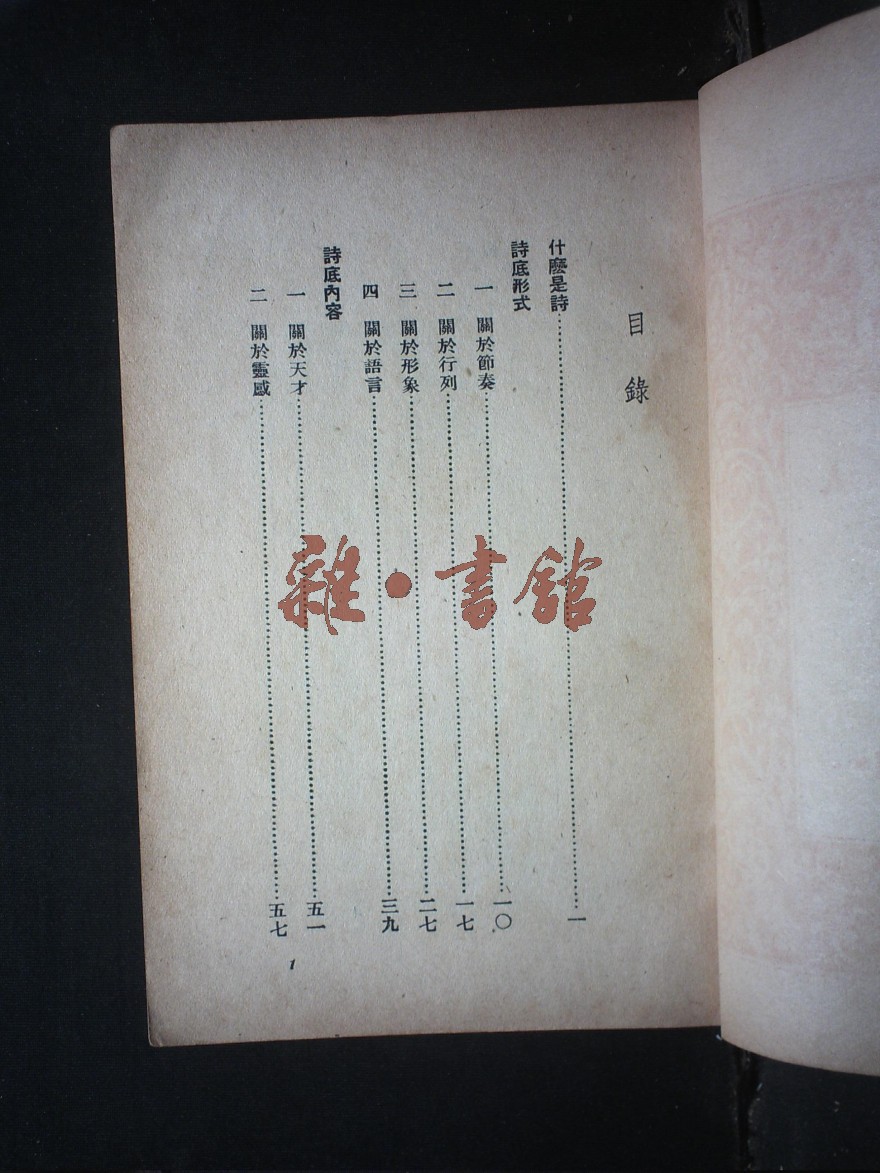 目錄
什麼是詩……一
詩底形式
一 關於節奏……一〇
二 關於行列……一七
三 關於形象……二七
四 關於語言……三九
詩底內容
一 關於天才……五一
二 關於靈感……五七
1
雜·書館